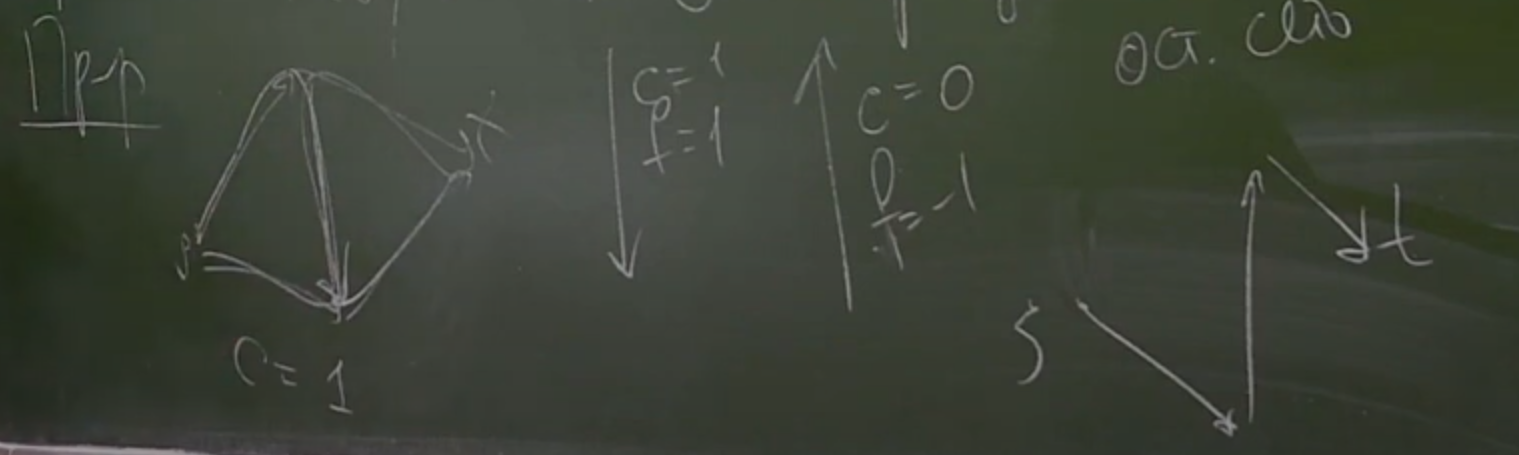 Пр-р
S
t
C = 1
C = 1
f = 1
C = 0
f = -1
ост. сеть
S
t